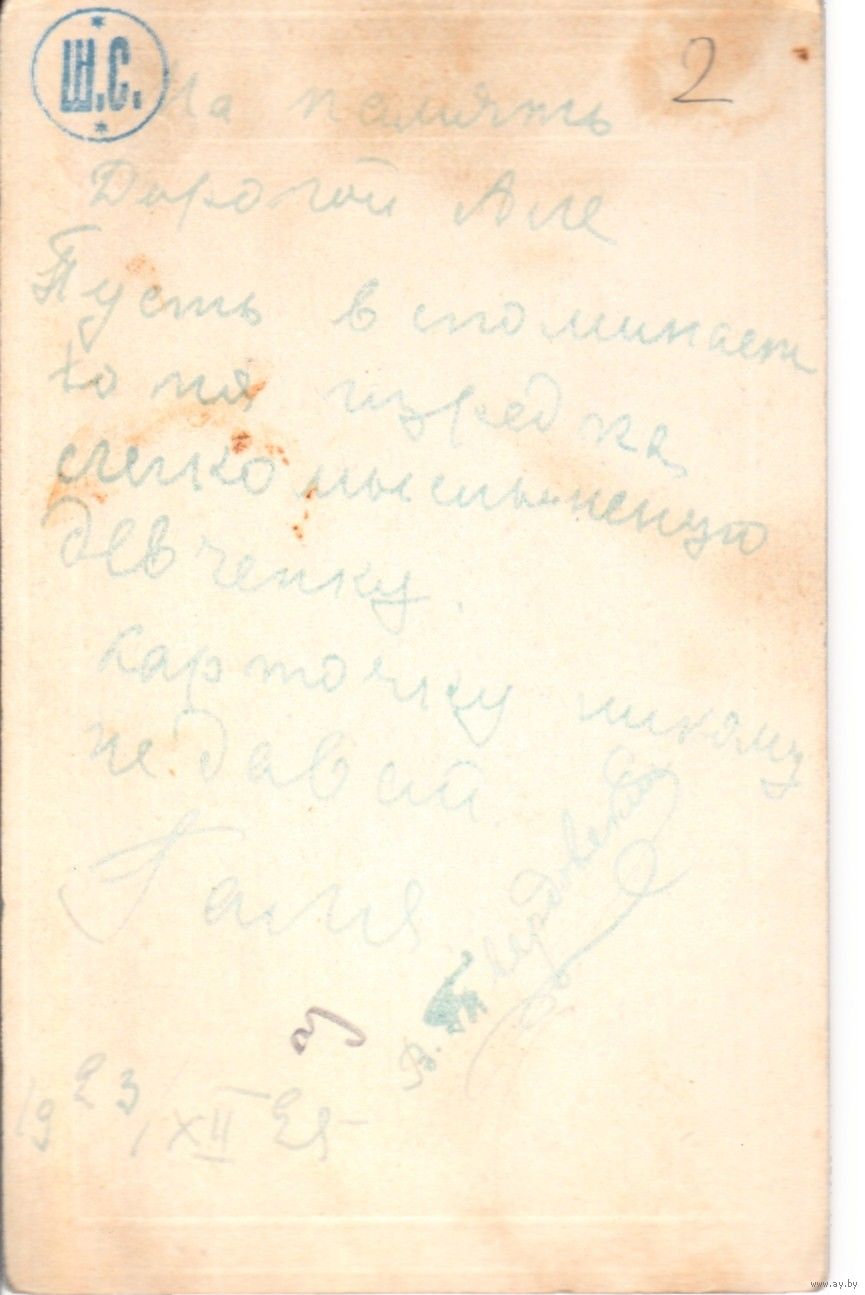 Ш.С.
2
На память
Дорогой Але
Пусть вспоминает
хотя изредка
слегкомысленную
девченку.
карточку никому
не давай.
Галя
1923, XII
www.ay.by